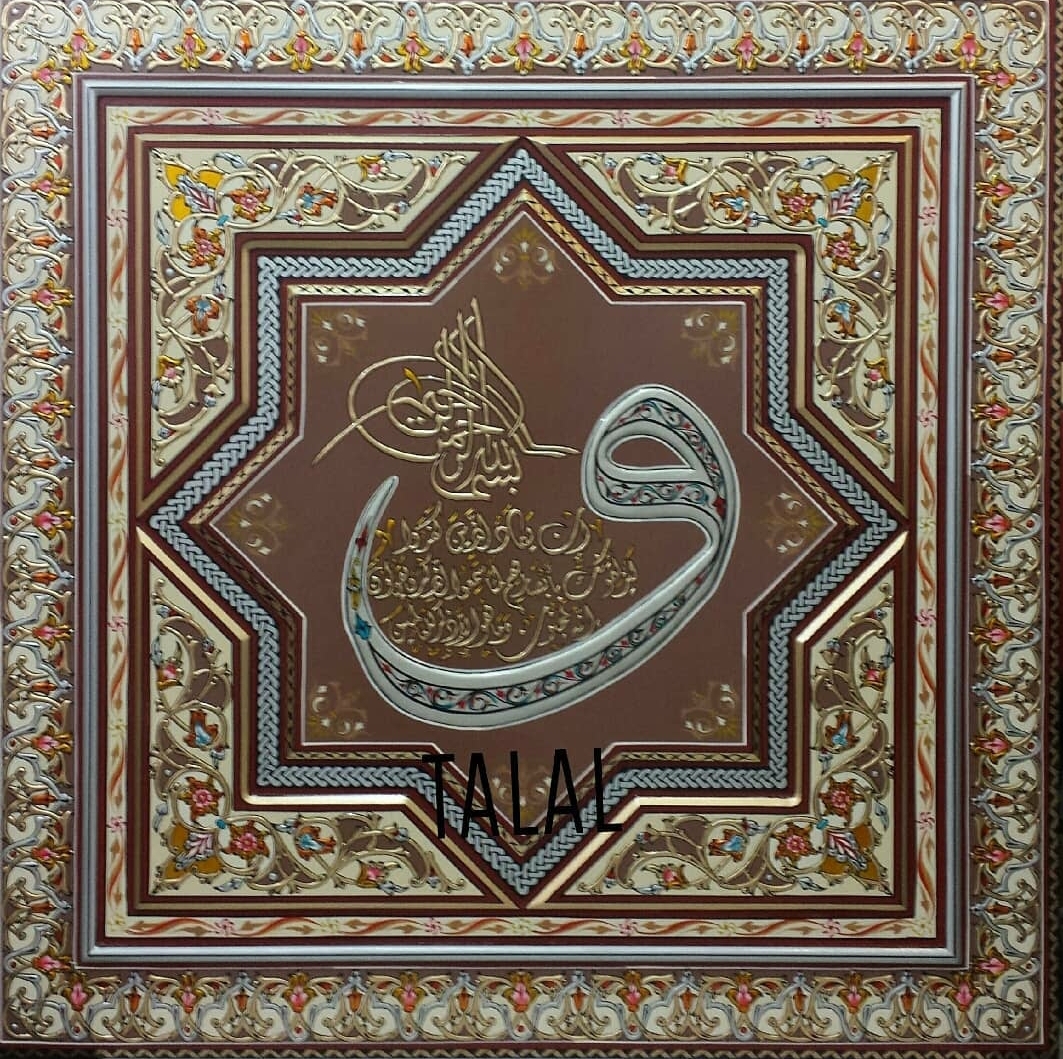 بسم الله الرحمن الرحيم
و
ان يكاد الذين كفروا
ليزلقونك بابصارهم لما سمعوا الذكر ويقولون
انه لمجنون وما هو الا ذكر للعالمين
TALAL